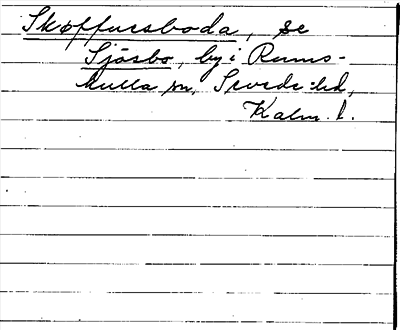 Skøffursboda, se
Sjösbo, by i Rums-
kulla sn, Sevede hd,
Kalm. l.